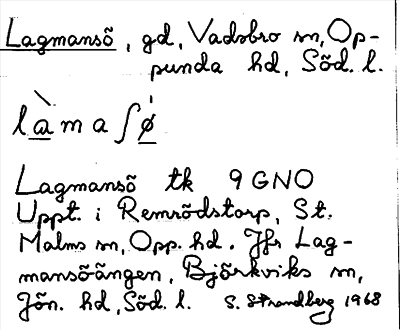 Lagmansö, gd, Vadsbro sn, Op-
punda hd, Söd. l.
làmaʃø̀
Lagmansö tk 9GNO
Uppt. i Remrödstorp, St.
Malms sn, Opp. hd. Jfr Lag-
mansöängen, Björkviks sn,
Jön. hd, Söd. l. S. Strandberg 1968